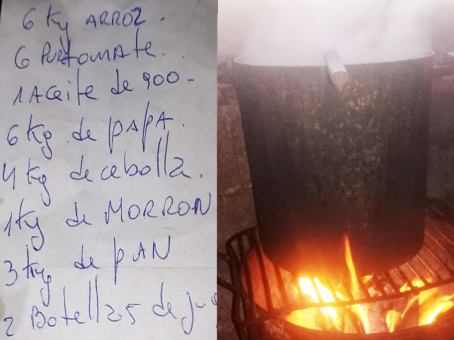 6 kg ARROZ.
6 PURTOMATE.
1 ACeite de 900-
6 kg de pApA.
4 kg de cebolla.
1 kg de MORRON
3 kg de pAN
2 Botellas de